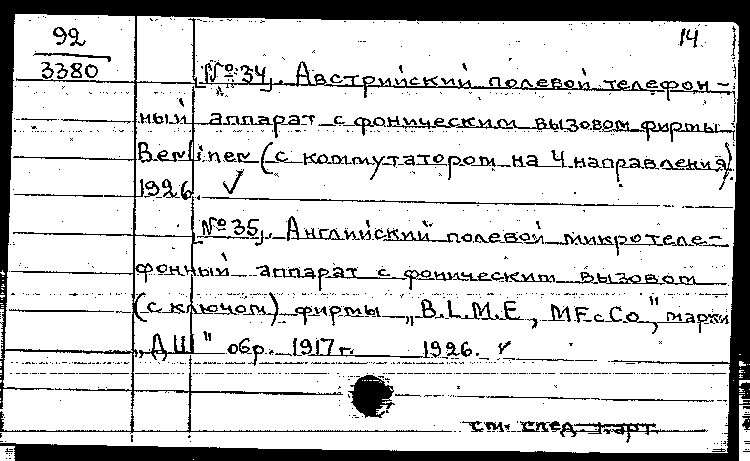 92
3380
14
[№ 34]. Австрийский полевой телефон-
ный аппарат с фоническим вызовом фирмы
Berliner (с коммутатором на 4 направления).
1926. ✓
[№ 35]. Английский полевой микротеле-
фонный аппарат с фоническим вызовом
(с ключом) фирмы „B.L.M.E, MFc Co", марки
„Д Ш" обр. 1917 г. 1926. ✓
см. след. карт.